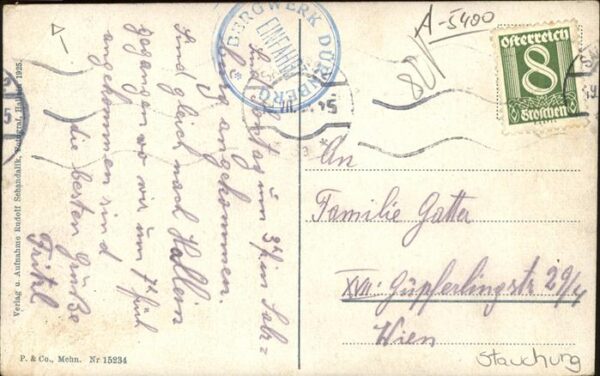 A-5400
BERGWERK DÜRRNBERG
EINFAHRT
Österreich
8
Groschen
Sind Montag um 3h in Salz=
burg angekommen.
Sind gleich nach Hallein
gegangen wo wir um 7h früh
angekommen sind
die besten Grüße
Fritzl
An
Familie Gatter
XVII: Güpferlingstr 29/4
Wien
Stauchung
Verlag u. Aufnahme Rudolf Schandalik, Fotograf, Hallein 1925.
P. & Co., Mchn. Nr 15234